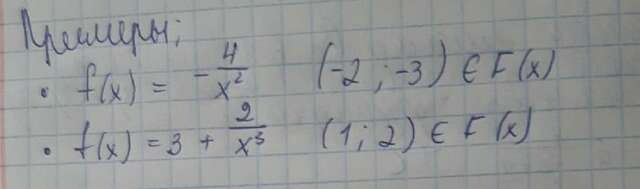 Примеры:
• f(x) = - 4/x² (-2 ; -3) ∈ F(x)
• f(x) = 3 + 2/x³ (1 ; 2) ∈ F(x)